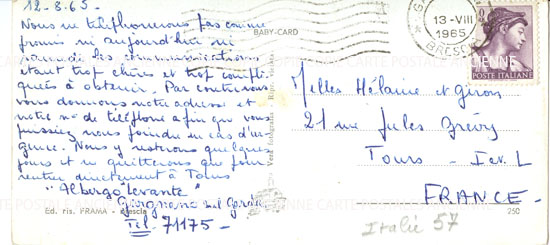 12-8-65.
Nous ne téléphonerons pas comme
promis ni aujourd'hui ni
samedi les communications
étant trop chères et trop compli
quées à obtenir. Par contre nous
vous donnons notre adresse et
notre n° de téléphone afin que vous
puissiez nous joindre en cas d'ur
gence. Nous y resterons quelques
jours et ne quitterons que pour
rentrer directement à Tours
"Albergo Levante"
Gargnano sul Garda
Tel. 71175-
Ed. ris. FRAMA - Brescia
BABY-CARD
Vera fotografia
13-VIII
1965
BRESCIA
POSTE ITALIANE
Melles Hélaine et Giron
21 rue Jules Grévy
Tours - I et L
FRANCE-
250
Italie 57